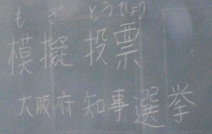 もぎ とうひょう
模擬投票
大阪府知事選挙